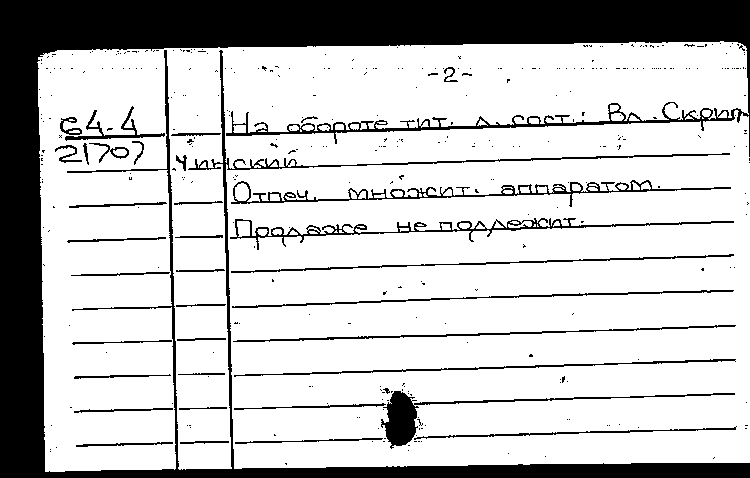 -2-
64-4
21707
На обороте тит. л. сост.: Вл. Скрип-
чинский
Отпеч. множит. аппаратом.
Продаже не подлежит.